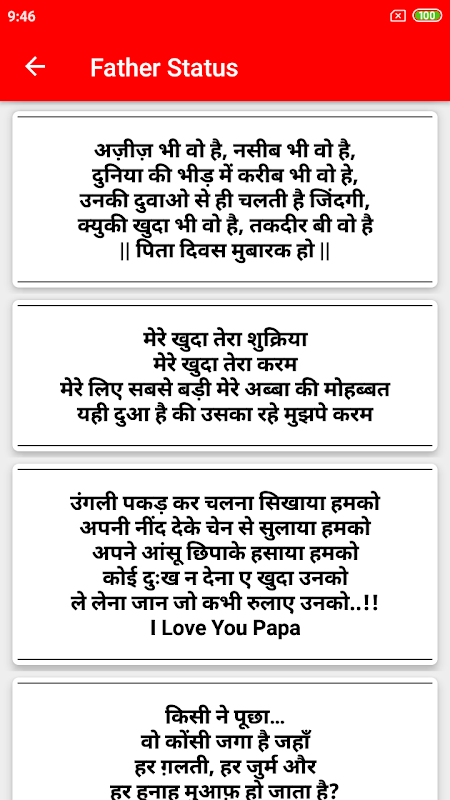 9:46
100
Father Status
अज़ीज़ भी वो है, नसीब भी वो है,
दुनिया की भीड़ में करीब भी वो हे,
उनकी दुवाओ से ही चलती है जिंदगी,
क्युकी खुदा भी वो है, तकदीर बी वो है
|| पिता दिवस मुबारक हो ||
मेरे खुदा तेरा शुक्रिया
मेरे खुदा तेरा करम
मेरे लिए सबसे बड़ी मेरे अब्बा की मोहब्बत
यही दुआ है की उसका रहे मुझपे करम
उंगली पकड़ कर चलना सिखाया हमको
अपनी नींद देके चेन से सुलाया हमको
अपने आंसू छिपाके हसाया हमको
कोई दुःख न देना ए खुदा उनको
ले लेना जान जो कभी रुलाए उनको..!!
I Love You Papa
किसी ने पूछा...
वो कोंसी जगा है जहाँ
हर ग़लती, हर जुर्म और
हर हुनाह मुआफ़ हो जाता है?